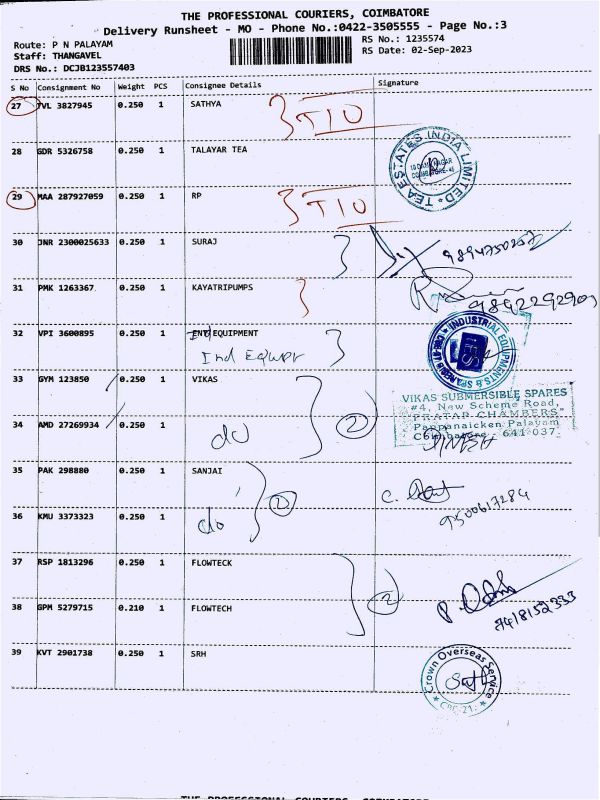 THE PROFESSIONAL COURIERS, COIMBATORE
Delivery Runsheet - MO - Phone No.:0422-3505555 - Page No.:3
Route: P N PALAYAM
RS No.: 1235574
Staff: THANGAVEL
RS Date: 02-Sep-2023
DRS No.: DCJB123557403
S No Consignment No Weight PCS Consignee Details Signature
27 TVL 3827945 0.250 1 SATHYA
28 GDR 5326758 0.250 1 TALAYAR TEA
TEA ESTATES INDIA LIMITED
29 MAA 287927059 0.250 1 RP
30 JNR 2300025633 0.250 1 SURAJ
31 PMK 1263367 0.250 1 KAYATRIPUMPS
9842292909
32 VPI 3600895 0.250 1 IND EQUIPMENT
Ind Equpt
33 GYM 123850 0.250 1 VIKAS
VIKAS SUBMERSIBLE SPARES
#4, New Scheme Road,
"PRATAP CHAMBERS"
Pappanaicken Palayam
Coimbatore - 641 037.
34 AMD 27269934 0.250 1
do 2
35 PAK 298880 0.250 1 SANJAI
2
9500617284
36 KMU 3373323 0.250 1
do
37 RSP 1813296 0.250 1 FLOWTECK
2
38 GPM 5279715 0.210 1 FLOWTECH
7418152333
39 KVT 2901738 0.250 1 SRH
Crown Overseas Service
THE PROFESSIONAL COURIERS, COIMBATORE